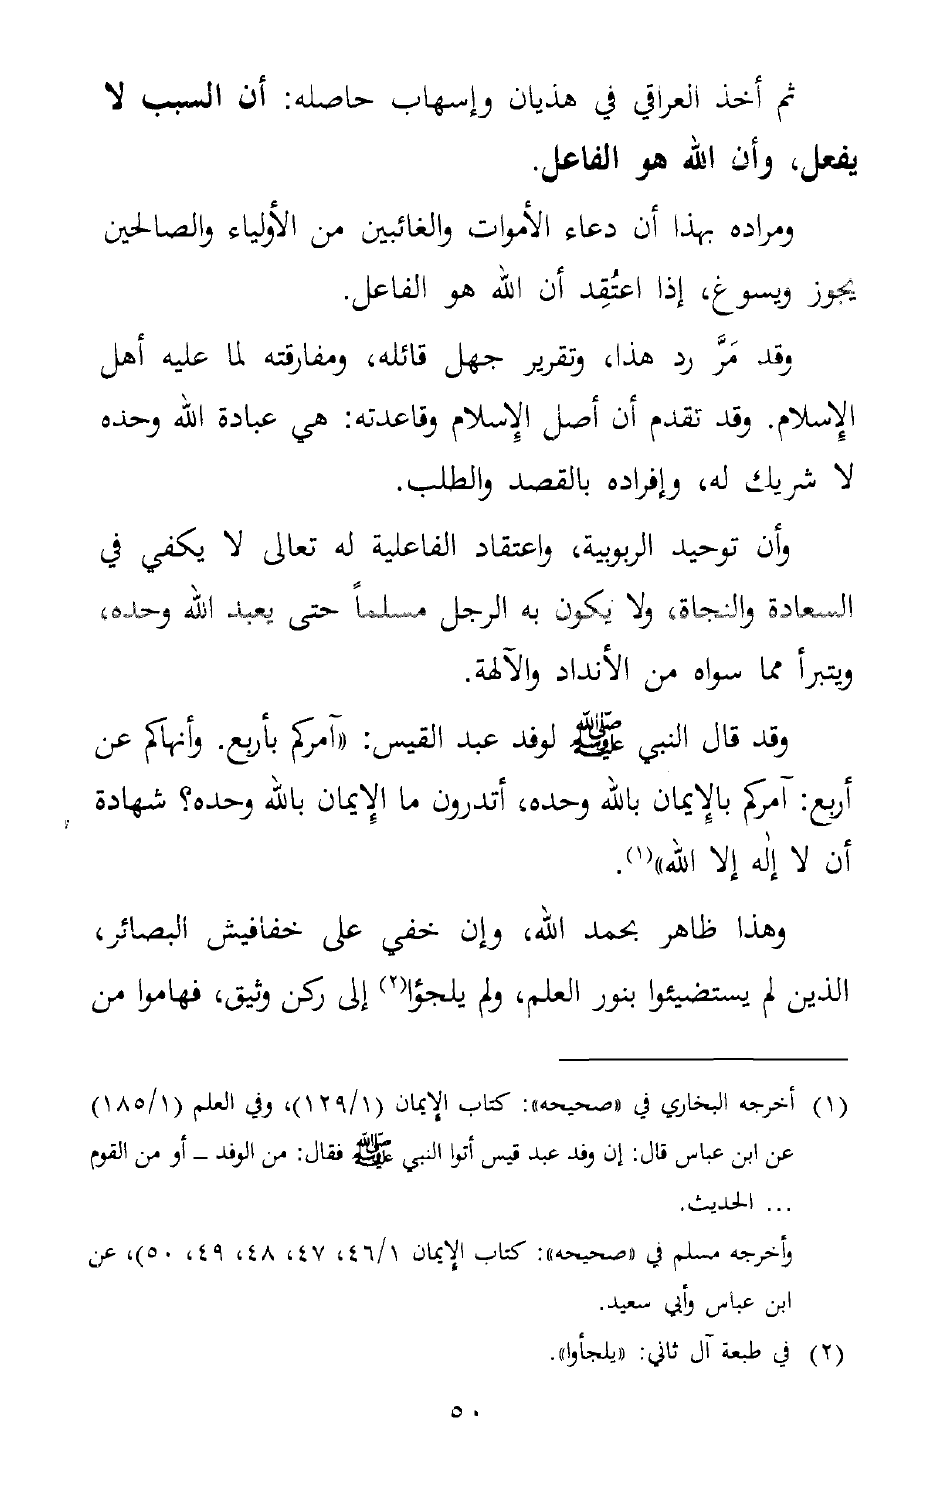 ثم أخذ العراقي في هذيان وإسهاب حاصله: أن السبب لا
يفعل، وأن الله هو الفاعل.
ومراده بهذا أن دعاء الأموات والغائبين من الأولياء والصالحين
يجوز ويسوغ، إذا اعتُقِد أن الله هو الفاعل.
وقد مَرَّ رد هذا، وتقرير جهل قائله، ومفارقته لما عليه أهل
الإسلام. وقد تقدم أن أصل الإسلام وقاعدته: هي عبادة الله وحده
لا شريك له، وإفراده بالقصد والطلب.
وأن توحيد الربوبية، واعتقاد الفاعلية له تعالى لا يكفي في
السعادة والنجاة، ولا يكون به الرجل مسلماً حتى يعبد الله وحده،
ويتبرأ مما سواه من الأنداد والآلهة.
وقد قال النبي ﷺ لوفد عبد القيس: «آمركم بأربع. وأنهاكم عن
أربع: آمركم بالإيمان بالله وحده، أتدرون ما الإيمان بالله وحده؟ شهادة
أن لا إلٰه إلا الله»(١).
وهذا ظاهر بحمد الله، وإن خفي على خفافيش البصائر،
الذين لم يستضيئوا بنور العلم، ولم يلجؤا(٢) إلى ركن وثيق، فهاموا من
(١) أخرجه البخاري في «صحيحه»: كتاب الإيمان (١٢٩/١)، وفي العلم (١٨٥/١)
عن ابن عباس قال: إن وفد عبد قيس أتوا النبي ﷺ فقال: من الوفد ــ أو من القوم
... الحديث.
وأخرجه مسلم في «صحيحه»: كتاب الإيمان ٤٦/١، ٤٧، ٤٨، ٤٩، ٥٠)، عن
ابن عباس وأبي سعيد.
(٢) في طبعة آل ثاني: «يلجأوا».
٥٠